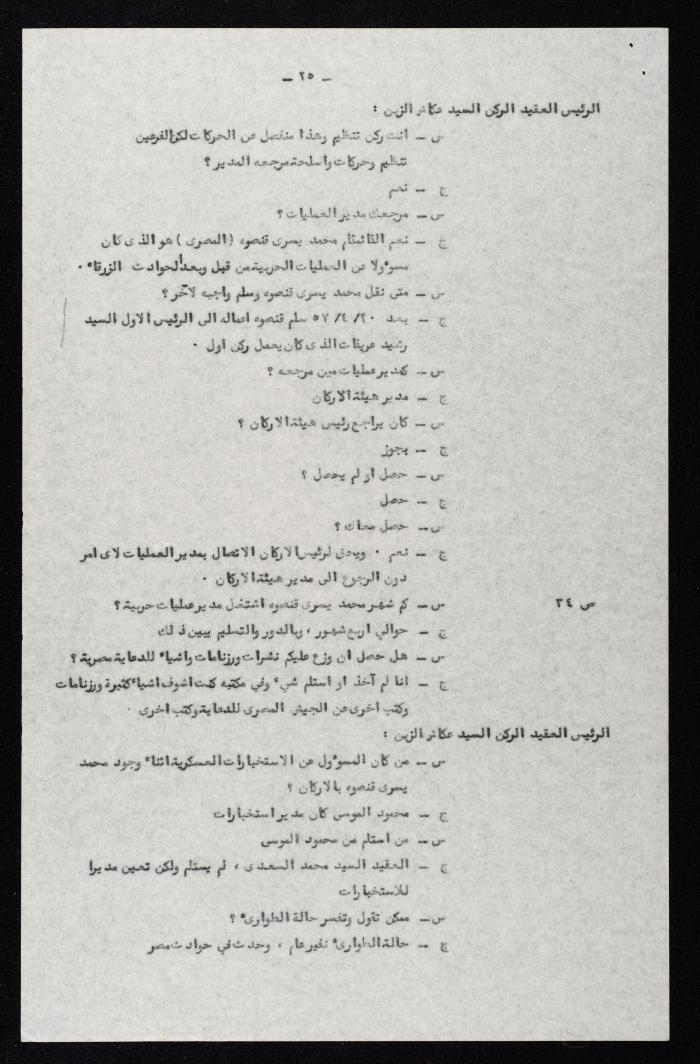 ـ ٢٥ ـ
الرئيس العقيد الركن السيد عكاش الزبن :
س ـ انت ركن تنظيم وهذا منفصل عن الحركات لكن الفرعين
تنظيم وحركات واسلحة مرجعه المدير ؟
ج ـ نعم
س ـ مرجعك مدير العمليات ؟
ج ـ نعم القائمقام محمد يسرى قنصوه (المصرى) هو الذى كان
مسوءولا عن العمليات الحربية من قبل وبعد الحوادث الزرقاء .
س ـ متى نقل محمد يسرى قنصوه وسلم واجبه لآخر ؟
ج ـ بعد ٢٠/ ٤/ ٥٧ سلم قنصوه اعماله الى الرئيس الاول السيد
رشيد عريقات الذى كان يعمل ركن اول .
س ـ كمدير عمليات مين مرجعه ؟
ج ـ مدير هيئة الاركان
س ـ كان يراجع رئيس هيئة الاركان ؟
ج ـ يجوز
س ـ حصل او لم يحصل ؟
ج ـ حصل
س ـ حصل معاك ؟
ج ـ نعم . ويحق لرئيس الاركان الاتصال بمدير العمليات لاى امر
دون الرجوع الى مدير هيئة الاركان .
ص ٣٤
س ـ كم شهر محمد يسرى قنصوه اشتغل مدير عمليات حربية ؟
ج ـ حوالي اربع شهور ، وبالدور والتسليم يبين ذلك
س ـ هل حصل ان وزع عليكم نشرات ورزنامات واشياء للدعاية مصرية ؟
ج ـ انا لم آخذ او استلم شيء وفي مكتبه كنت اشوف اشياء كثيرة ورزنامات
وكتب اخرى عن الجيش المصرى للدعاية وكتب اخرى .
الرئيس العقيد الركن السيد عكاش الزبن :
س ـ من كان المسوءول عن الاستخبارات العسكرية اثناء وجود محمد
يسرى قنصوه بالاركان ؟
ج ـ محمود الموسى كان مدير استخبارات
س ـ من استلم من محمود الموسى
ج ـ العقيد السيد محمد السعدى ، لم يستلم ولكن تعين مديرا
للاستخبارات
س ـ ممكن تقول وتفسر حالة الطوارىء ؟
ج ـ حالة الطوارىء نفير عام ، وحدث في حوادث مصر